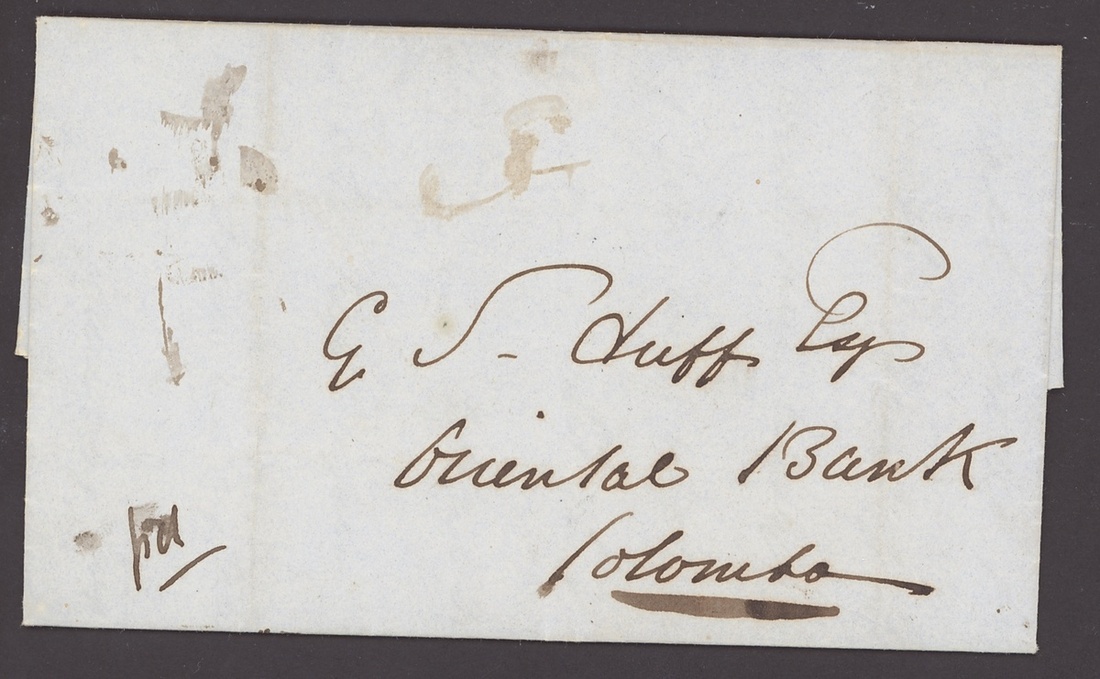 G S - Duff Esqr
Oriental Bank
Colombo